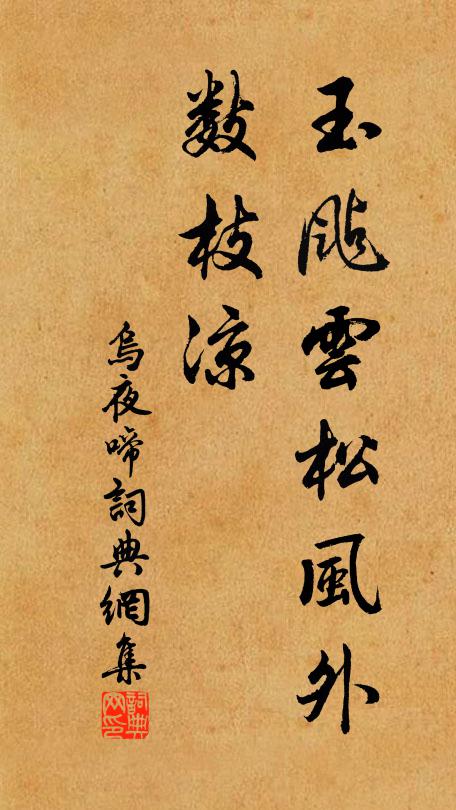 玉颭雲松風外
數枝涼
烏夜啼詞典網集
詞典网印